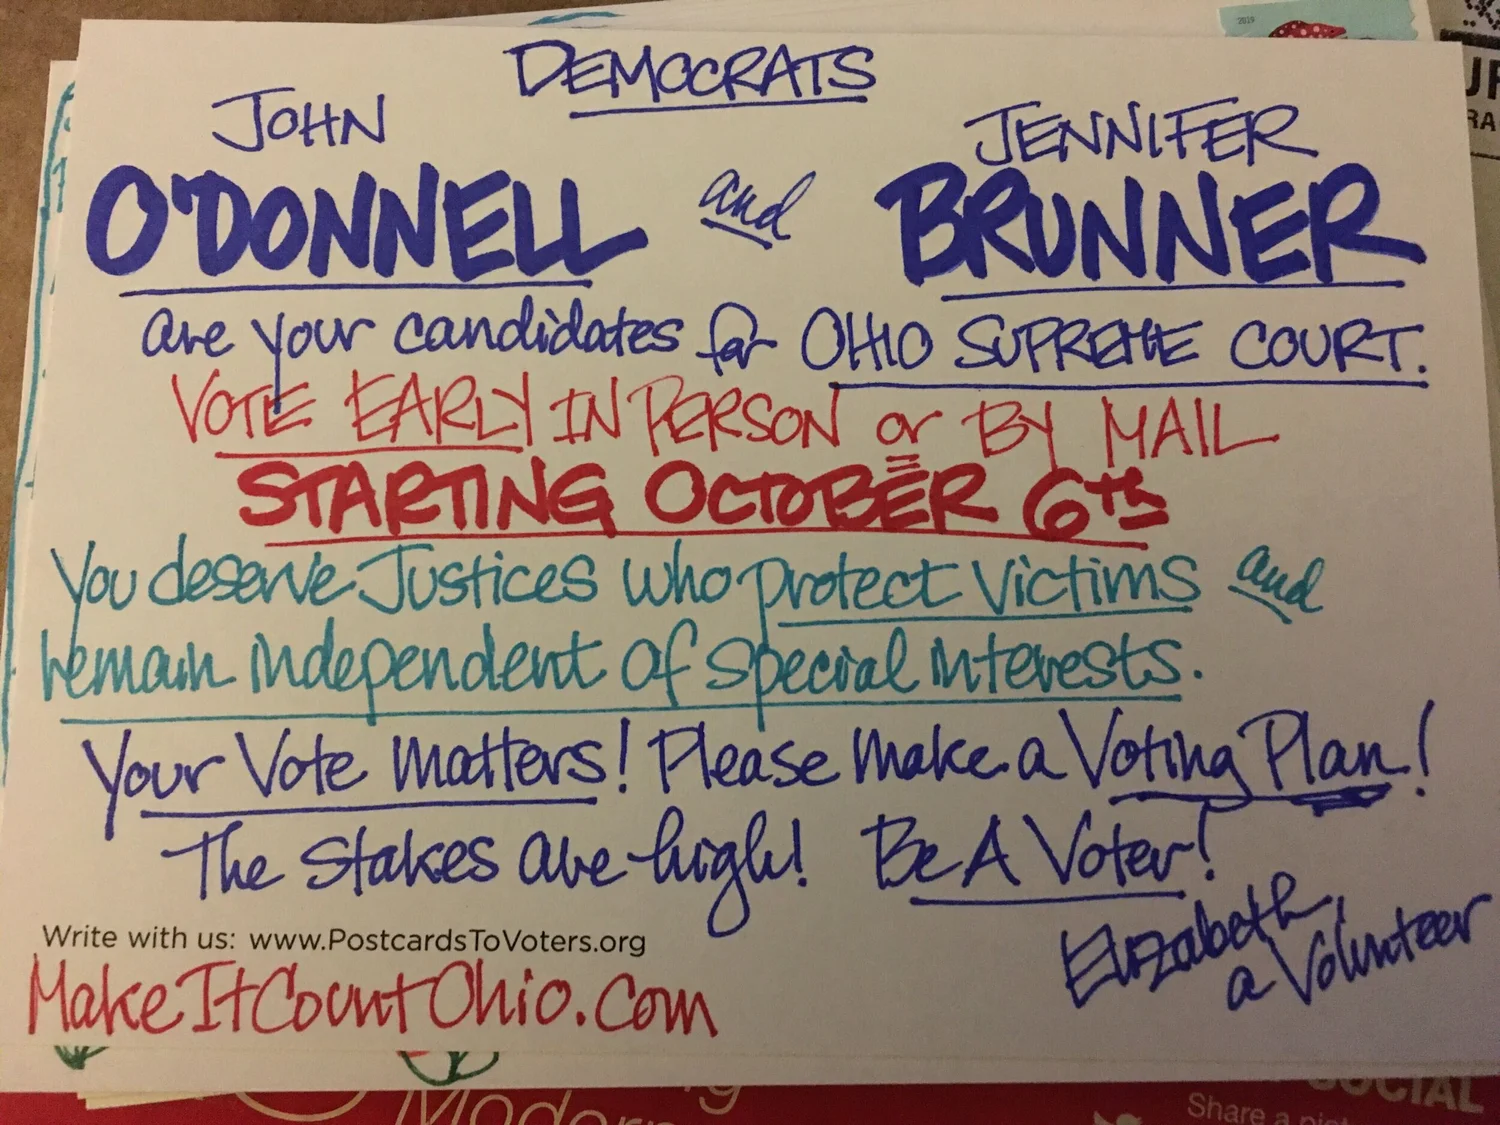 2019
DEMOCRATS
JOHN
JENNIFER
O'DONNELL and BRUNNER
are your candidates for OHIO SUPREME COURT.
VOTE EARLY IN PERSON or BY MAIL
STARTING OCTOBER 6TH
You deserve Justices who protect victims and
remain independent of special interests.
Your Vote Matters! Please make a Voting Plan!
The Stakes are high! Be A Voter!
Elizabeth,
a Volunteer
Write with us: www.PostcardsToVoters.org
MakeItCountOhio.Com
SOCIAL
Share a